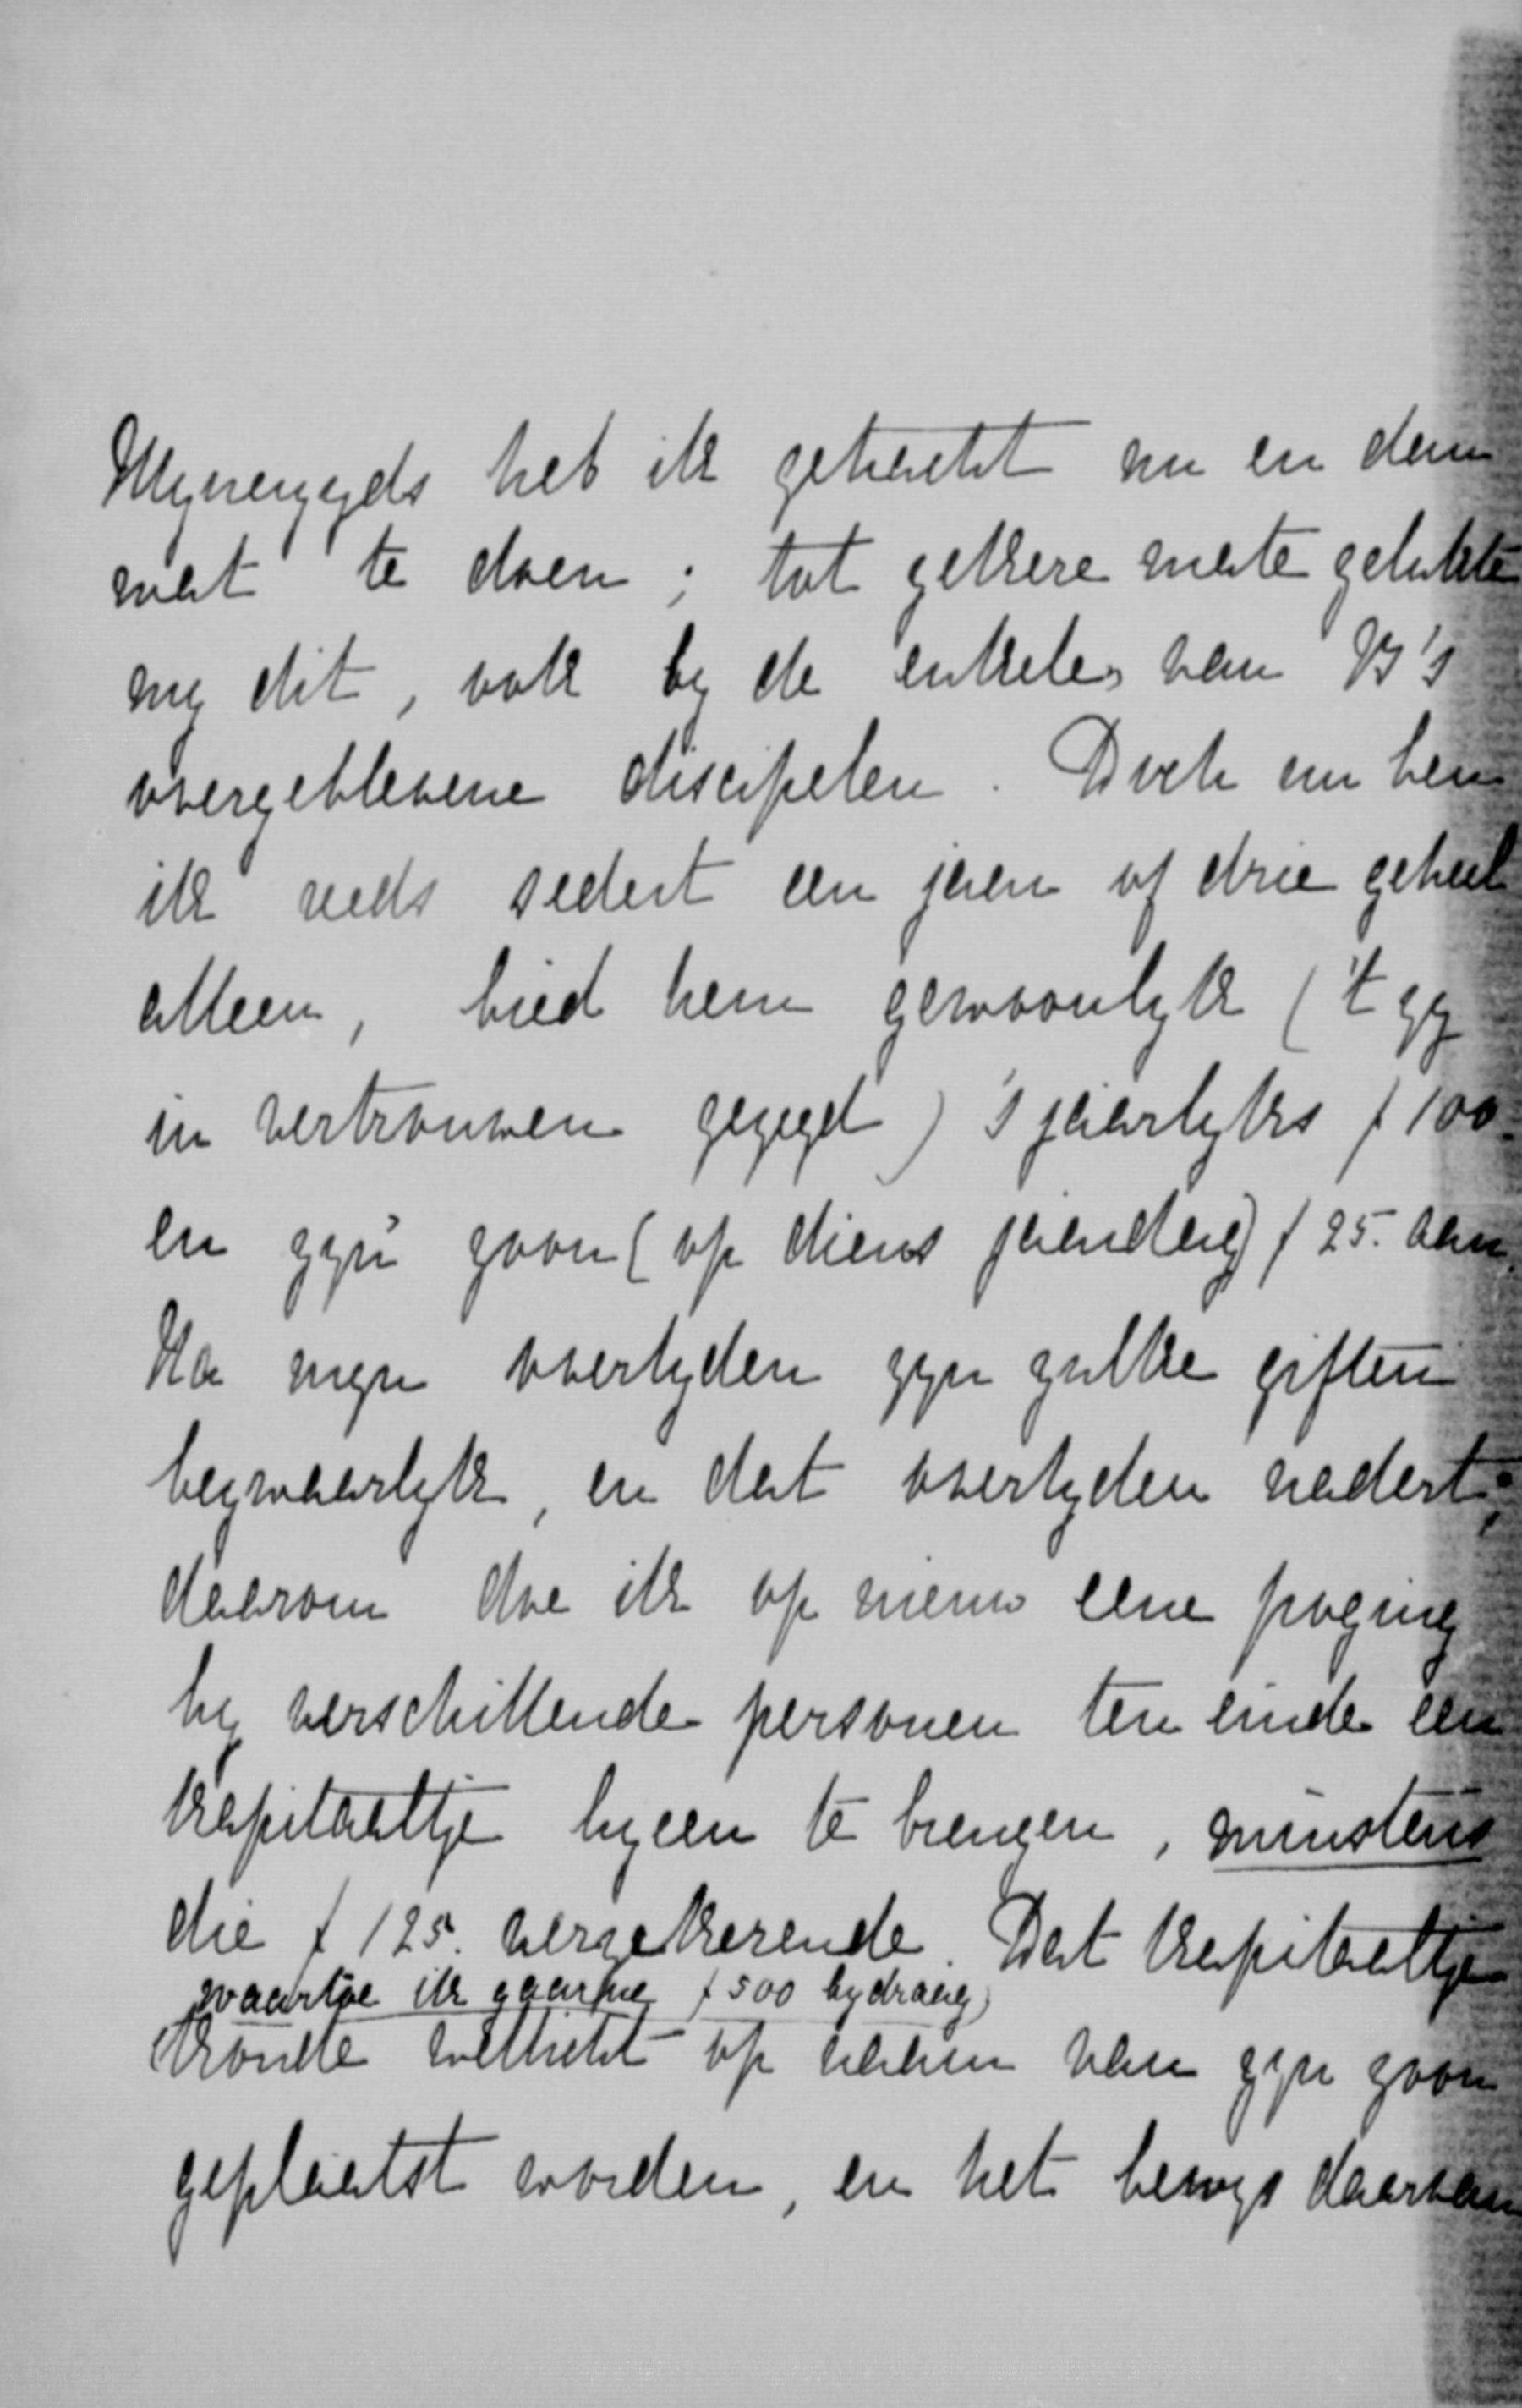 Mynerzyds heb ik getracht nu en dan
wat te doen; tot zekere mate gelukte
my dit, ook by de enkele van B's
overgeblevene discipelen. Doch nu ben
ik reeds sedert een jaar of drie geheel
alleen, bied hem gewoonlyk ('t zy
in vertrouwen gezegd) 's jaarlyks f 100.
en zyn zoon (op diens jaardag) f 25. aan.
Na myn overlyden zyn zulke giften
bezwaarlyk, en dat overlyden nadert;
daarom doe ik op nieuw eene poging
by verschillende personen ten einde een
kapitaaltje byeen te brengen, minstens
die f 125. verzekerende. Dat kapitaaltje
(waartoe ik gaarne f 500 bydraag)
konde wellicht op naam van zyn zoon
geplaatst worden, en het bewys daarvan